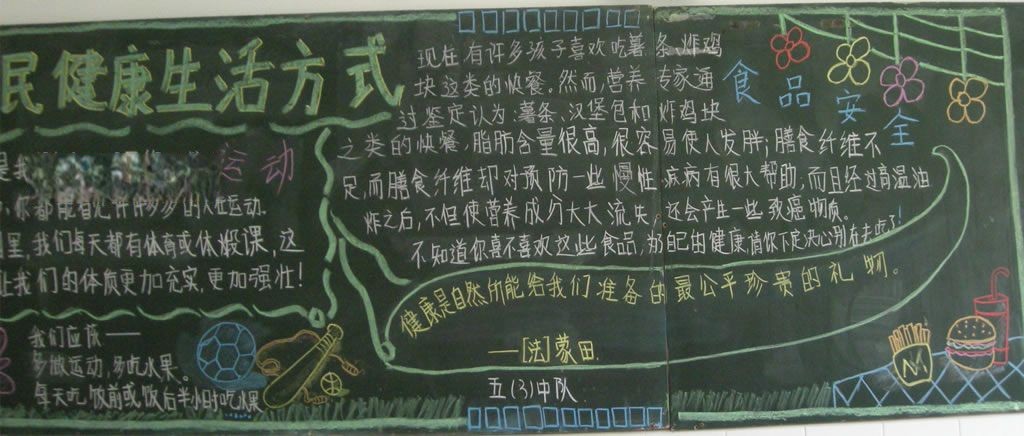 民健康生活方式
运动
里,我们每天都有体育或体锻课,这
让我们的体质更加充实,更加强壮!
我们应该——
多做运动,多吃水果。
每天吃饭前或饭后半小时吃水果
现在有许多孩子喜欢吃薯条炸鸡
块这类的快餐。然而营养专家通
过鉴定认为:薯条、汉堡包和炸鸡块
之类的快餐,脂肪含量很高,很容易使人发胖;膳食纤维不
足,而膳食纤维却对预防一些慢性疾病有很大帮助,而且经过高温油
炸之后,不但使营养成分大大流失,还会产生一些致癌物质。
不知道你喜不喜欢这些食品,为自己的健康请你下定决心别在去吃了!
食品安全
健康是自然所能给我们准备的最公平珍贵的礼物。
——[法]蒙田
五(3)中队